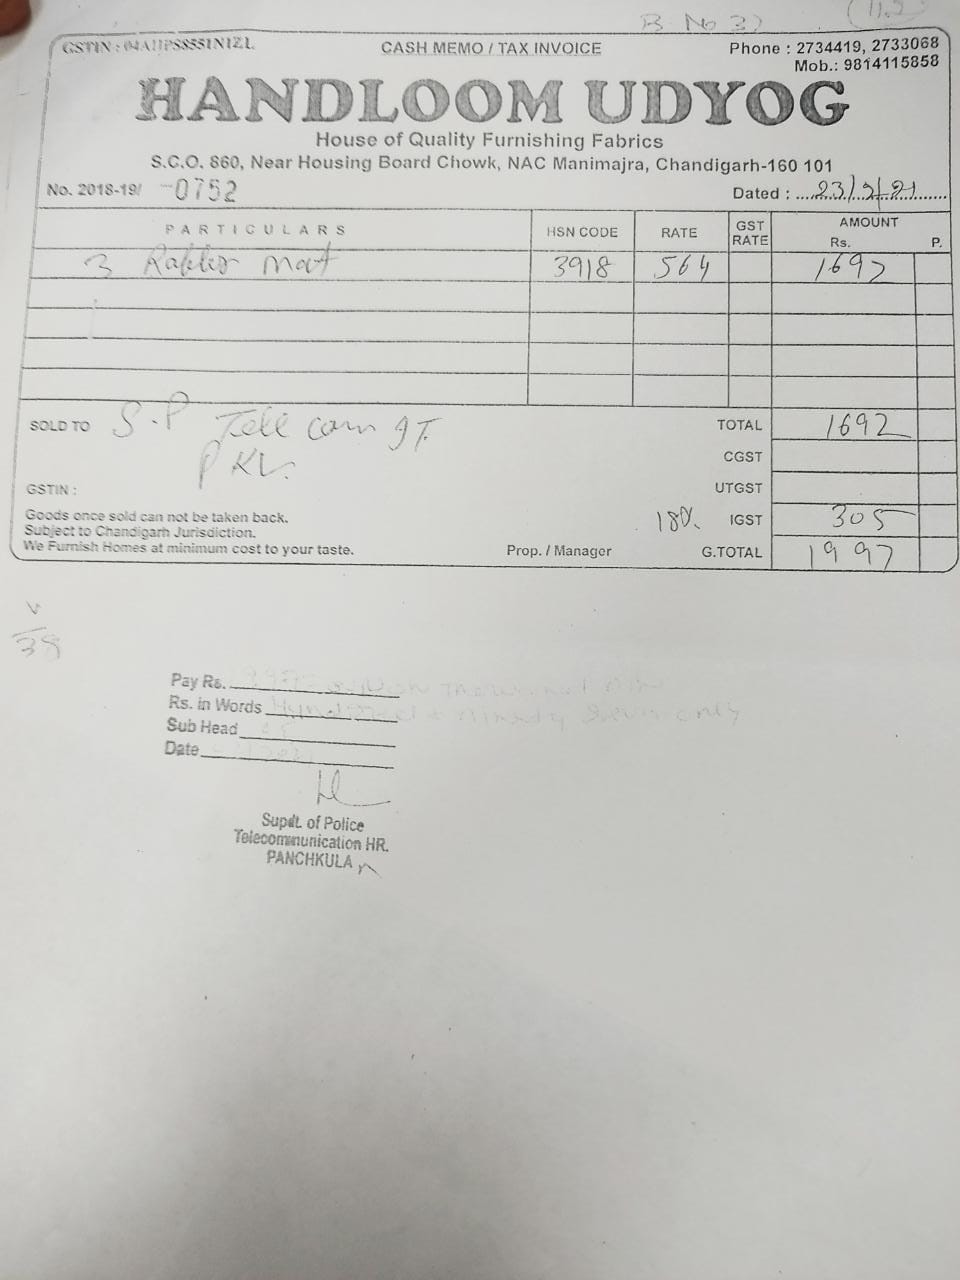 B. No 32
GSTIN : 04AIIPS8881N1ZL
CASH MEMO / TAX INVOICE
Phone : 2734419, 2733068
Mob.: 9814115858
HANDLOOM UDYOG
House of Quality Furnishing Fabrics
S.C.O. 860, Near Housing Board Chowk, NAC Manimajra, Chandigarh-160 101
No. 2018-19/ 0752
Dated : 23/2/21
PARTICULARS HSN CODE RATE GST RATE AMOUNT Rs. P.
3 Rabber mat 3918 564 1692
SOLD TO S.P Tele com IT. PKL.
TOTAL 1692
CGST
UTGST
GSTIN :
18% IGST 305
G.TOTAL 1997
Goods once sold can not be taken back.
Subject to Chandigarh Jurisdiction.
We Furnish Homes at minimum cost to your taste.
Prop. / Manager
V
38
Pay Rs. 1997
Rs. in Words only
Sub Head
Date
Supdt. of Police
Telecommunication HR.
PANCHKULA